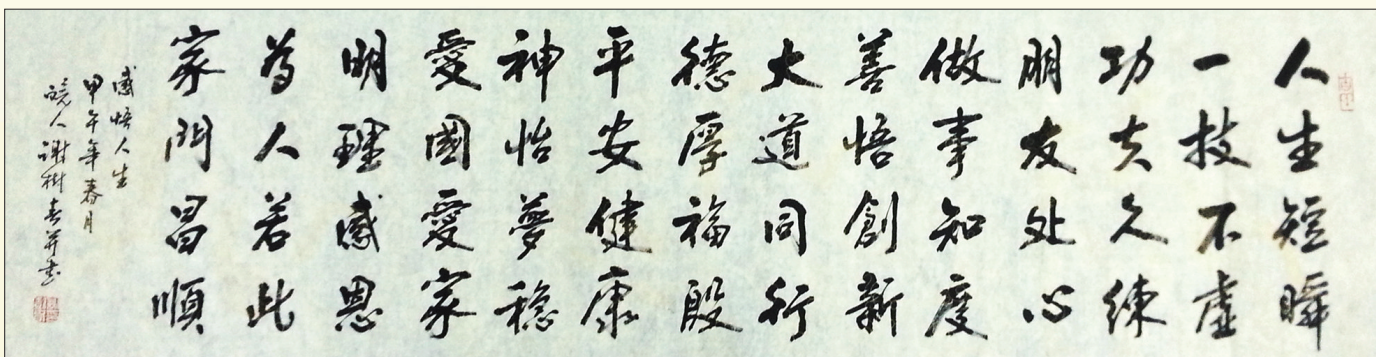 人生短瞬
一技不虚
功夫久练
朋友处心
做事知度
善悟創新
大道同行
德厚福殷
平安健康
神怡夢穩
愛國愛家
明理感恩
為人若此
家門昌順
感悟人生
甲午年春月
皖人謝樹春并書